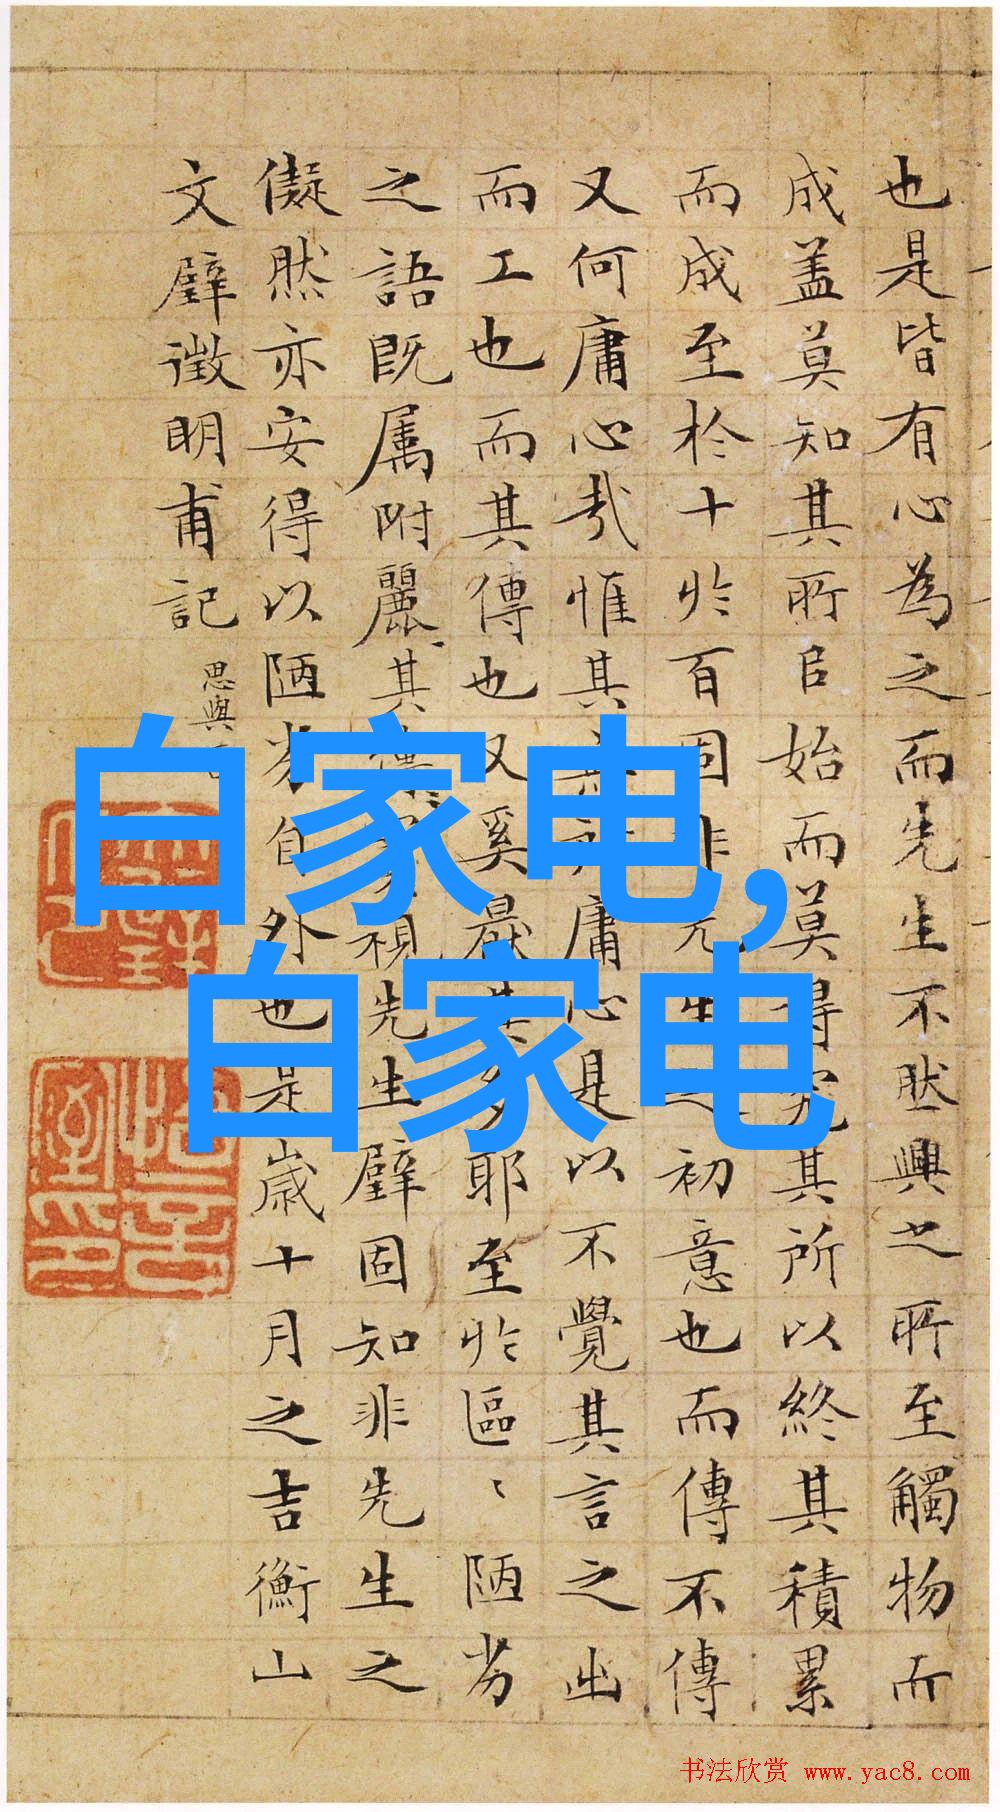 也是皆有心為之而先生不然興之所至觸物而
成盖莫知其所自始而莫得究其所以終其積累
而成至於十於百固非先生之初意也而傳不傳
又何庸心哉惟其無所庸心是以不覺其言之出
而工也而其傳也又奚屬其多耶至於區〻陋劣
之語既属附麗其視先生璧固知非先生之
儗然亦安得以陋劣自外也是歲十月之吉衡山
文璧徵明甫記
白家电,
白家电
书法欣赏 www.yac8.com